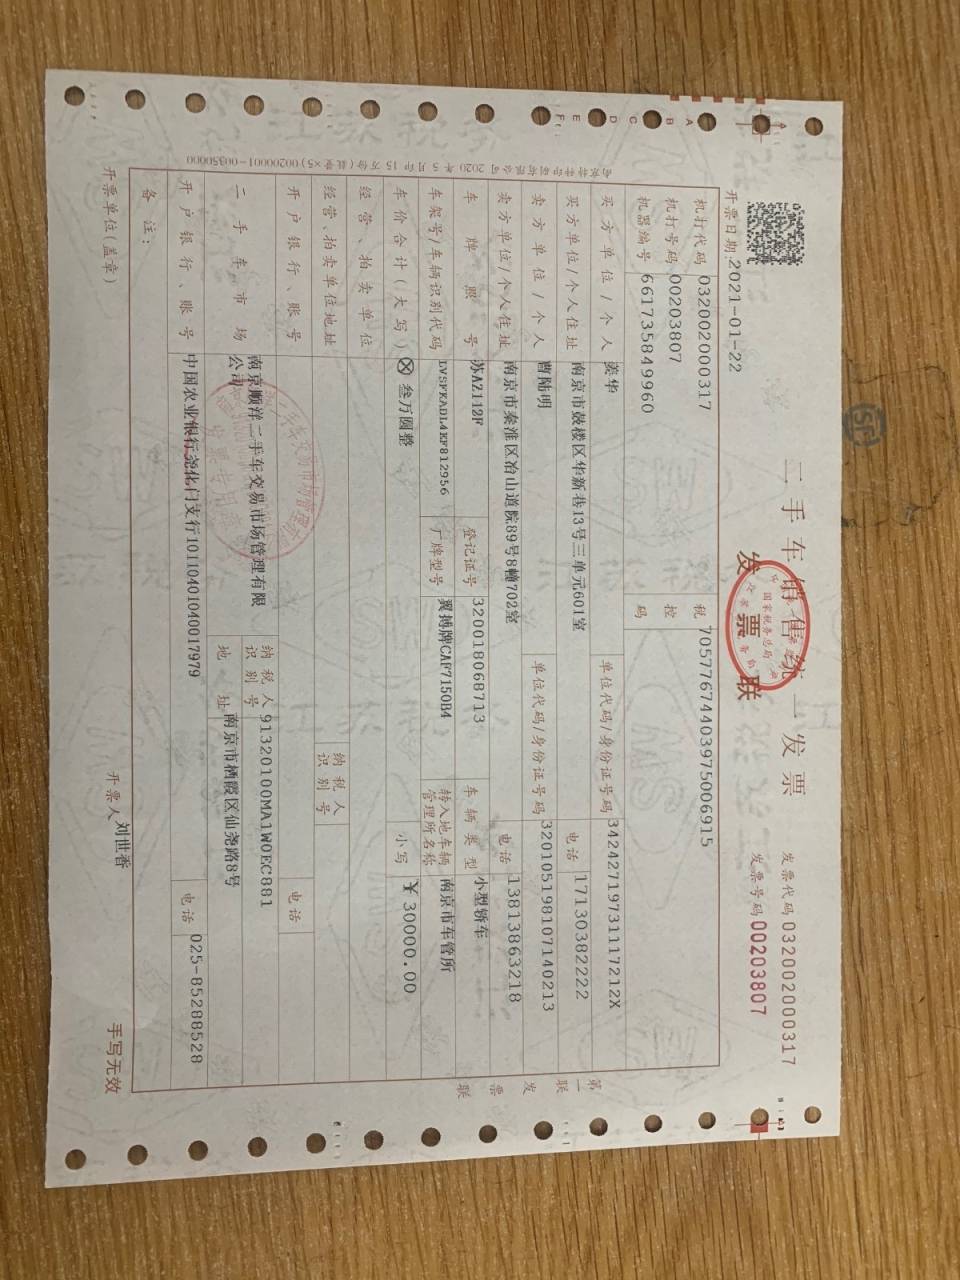 二手车销售统一发票
发票联
发票代码 032002000317
发票号码 00203807
开票日期 2021-01-22
机打代码 032002000317
机打号码 00203807
机器编号 661735849960
税控码 70577674403975006915
买方单位/个人 姜华 单位代码/身份证号码 34242719731117212X
买方单位/个人住址 南京市鼓楼区华新巷13号三单元601室 电话 17130382222
卖方单位/个人 曹陆明 单位代码/身份证号码 320105198107140213
卖方单位/个人住址 南京市秦淮区冶山道院89号8幢702室 电话 13813863218
车牌照号 苏AZ112F 登记证号 320018068713 车辆类型 小型轿车
车架号/车辆识别代码 LVSFKADL4EF812956 厂牌型号 翼搏牌CAF7150B4 转入地车辆管理所名称 南京市车管所
车价合计(大写) ⊗ 叁万圆整 小写 ￥30000.00
经营、拍卖单位
经营、拍卖单位地址 纳税人识别号
开户银行、账号 电话
二手车市场 南京顺洋二手车交易市场管理有限公司 纳税人识别号 91320100MA1W0EC881
地址 南京市栖霞区仙尧路8号
开户银行、账号 中国农业银行尧化门支行10110401040017979 电话 025-85288528
备注：
开票单位(盖章) 开票人 刘世香 手写无效
第一联 发票联